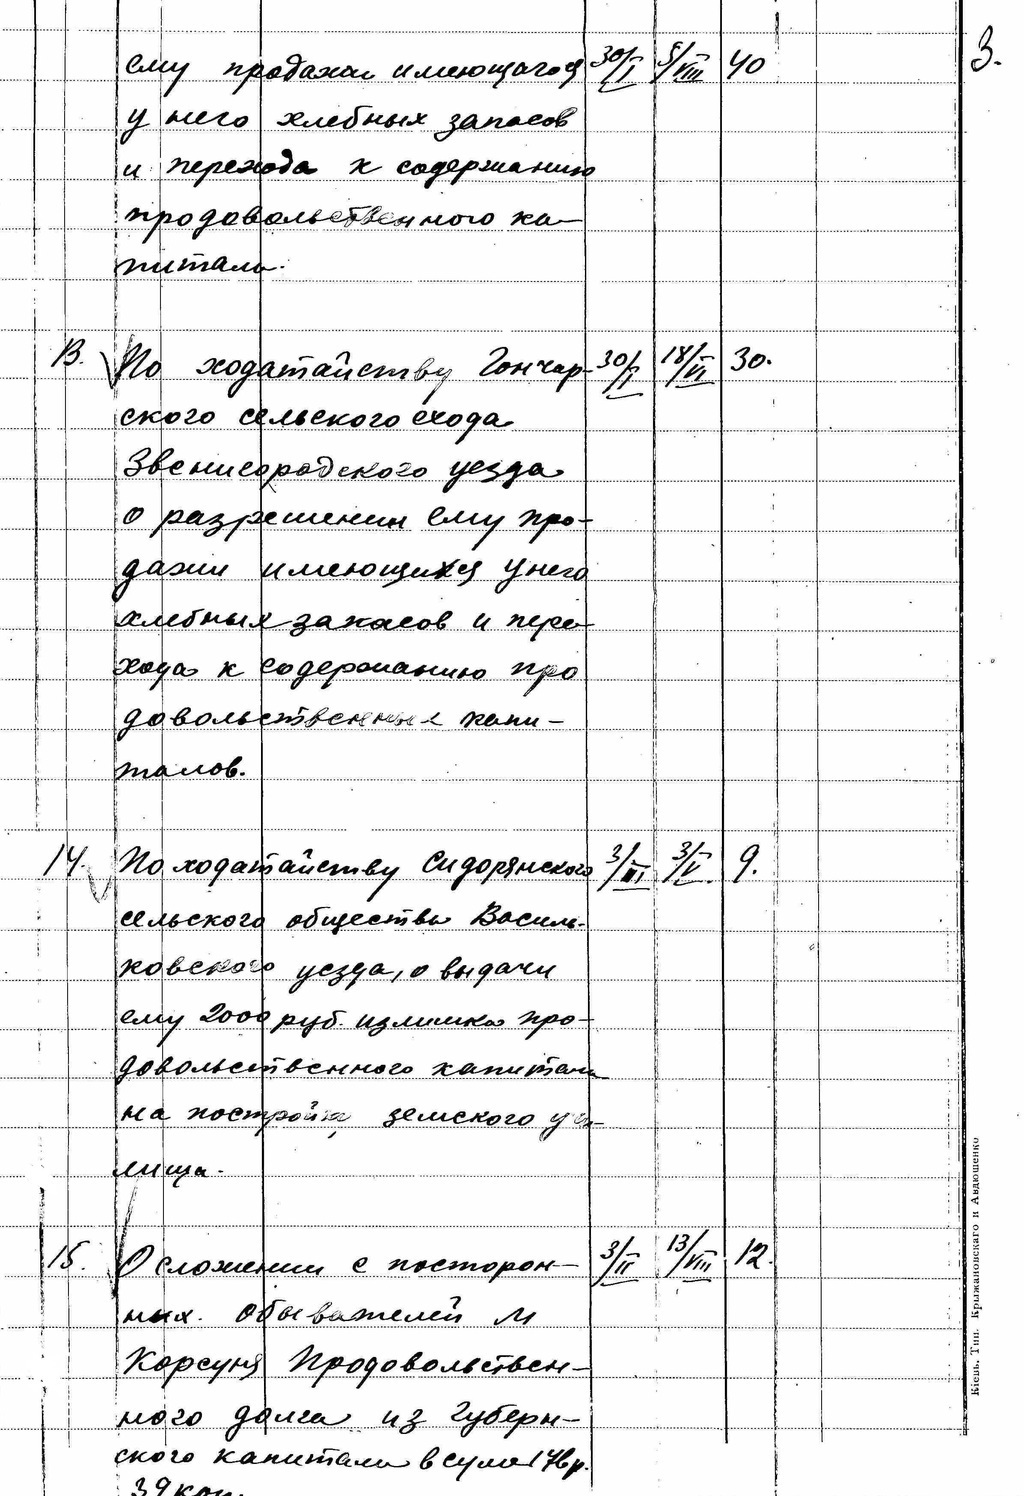 3.
ему продажи имеющагося 30/I 5/VIII 40
у него хлебных запасов
и перехода к содержанию
продовольственного ка-
питала.
13. По ходатайству Гончар- 30/I 18/VI 30.
ского сельского схода
Звенигородского уезда
о разрешении ему про-
дажи имеющихся у него
хлебных запасов и пере-
хода к содержанию про
довольственных капи-
талов.
14. По ходатайству Сидорянского 3/III 3/V 9.
сельского общества Василь-
ковского уезда, о выдачи
ему 2000 руб. излишка про-
довольственного капитала
на постройку земского учи-
лища.
15. О сложении с посторон- 3/II 13/VIII 12.
них. обывателей м
Корсуня Продовольствен-
ного долга из Губерн-
ского капитала в суме р.
39 коп.
Кіевъ, Тип. Крыжановскаго и Авдюшенко